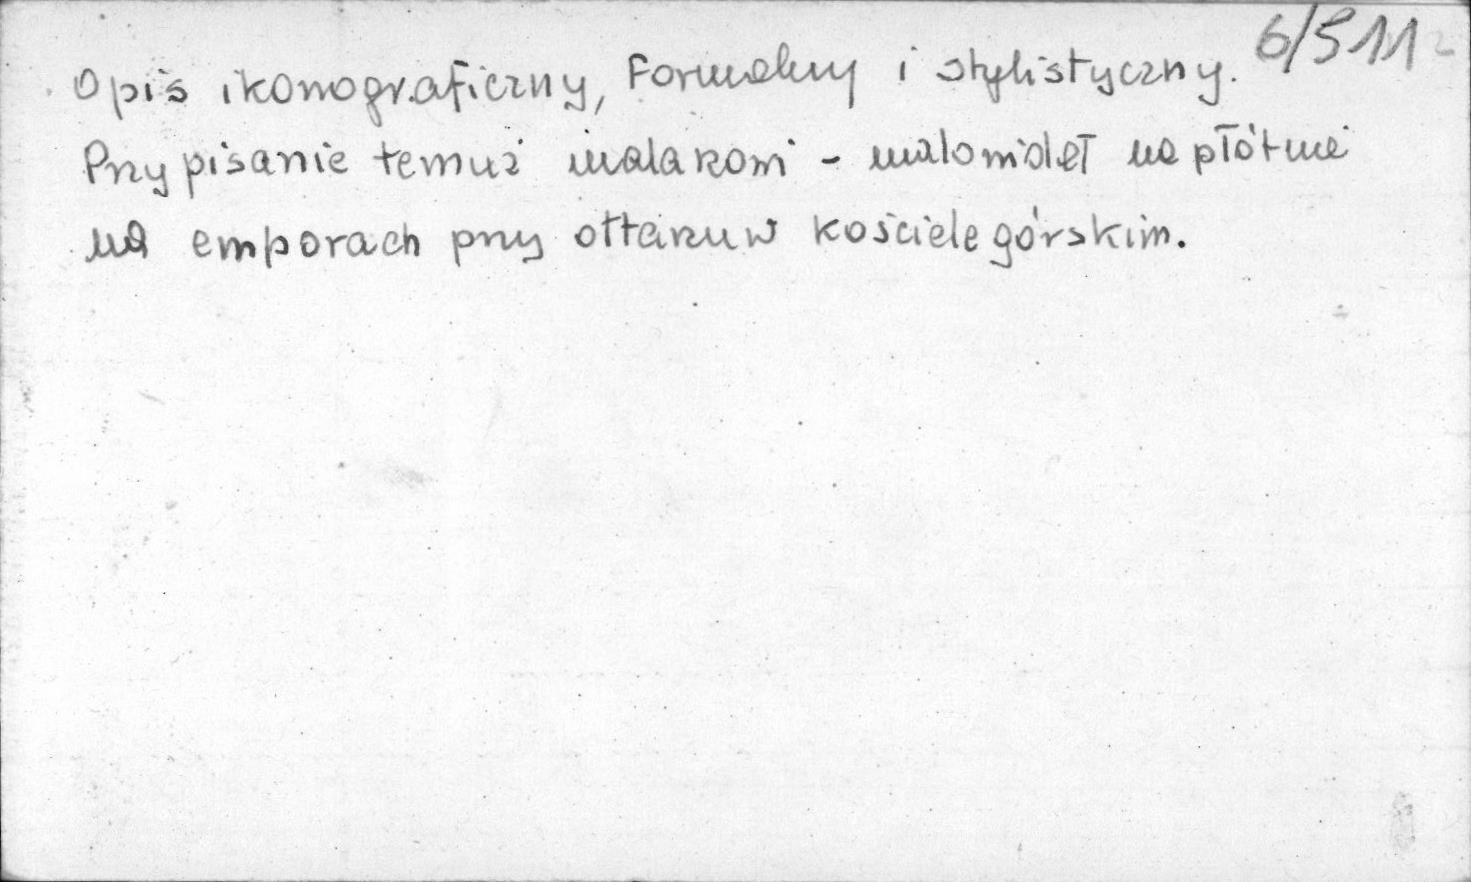 6/511
Opis ikonograficzny, Formalny i stylistyczny.
Przypisanie temuż malarzowi - malowideł na płótnie
na emporach przy ołtarzu w kościele górskim.